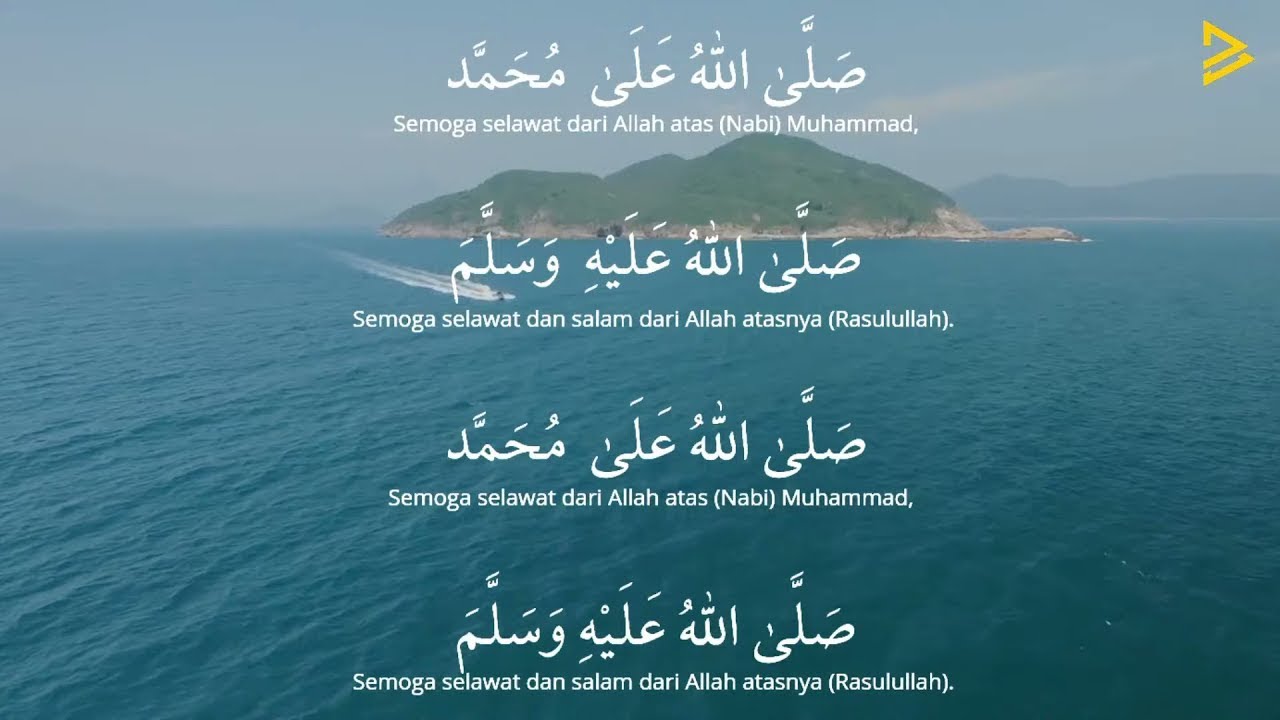 صَلَّىٰ اللّٰهُ عَلَىٰ مُحَمَّد
Semoga selawat dari Allah atas (Nabi) Muhammad,
صَلَّىٰ اللّٰهُ عَلَيْهِ وَسَلَّمَ
Semoga selawat dan salam dari Allah atasnya (Rasulullah).
صَلَّىٰ اللّٰهُ عَلَىٰ مُحَمَّد
Semoga selawat dari Allah atas (Nabi) Muhammad,
صَلَّىٰ اللّٰهُ عَلَيْهِ وَسَلَّمَ
Semoga selawat dan salam dari Allah atasnya (Rasulullah).